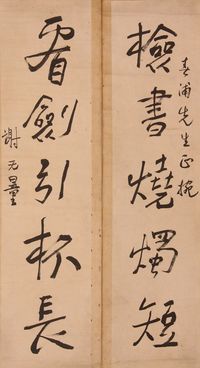 春浦先生正捥
檢書燒燭短
看劍引杯長
謝无量